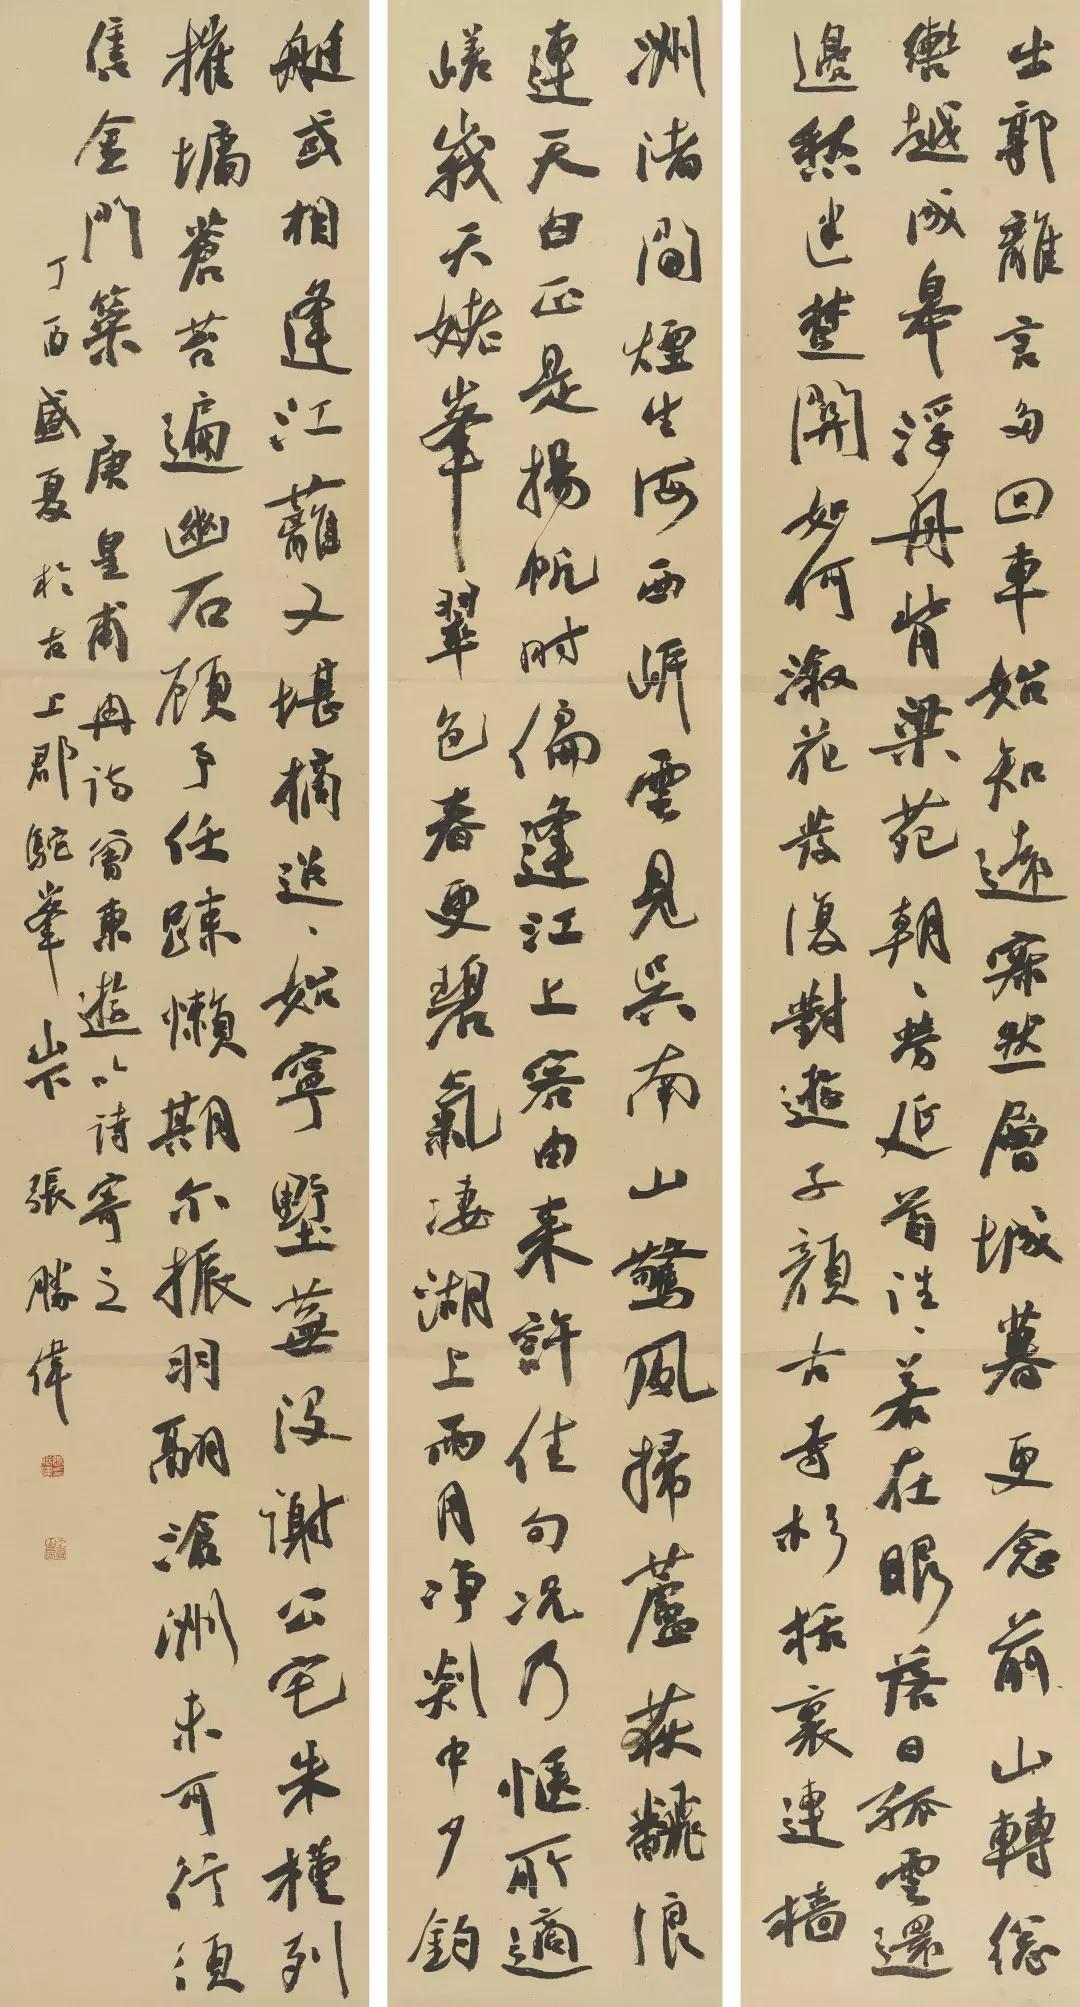 出郭離言多回車始知遠寂然層城暮更念前山轉總
轡越成皋浮舟背梁苑朝〻勞延首往〻若在眼落日孤雲還
邊愁迷楚關如何淑花發復對遊子顏古寺杉栝裏連檣
洲渚間煙生海西岸雲見吳南山驚風掃蘆荻翻浪
連天白正是揚帆時偏逢江上客由來許佳句況乃愜所適
嵯峨天姥峯翠色春更碧氣淒湖上雨月淨剡中夕釣
艇或相逢江蘺又堪摘迢〻始寧墅蕪沒謝公宅朱槿列
摧墉蒼苔遍幽石顧予任疎懶期尔振羽翮滄洲未可行須
售金門策 唐皇甫冉詩曾東遊以詩寄之
丁酉盛夏於古上郡駝峯山下張勝偉